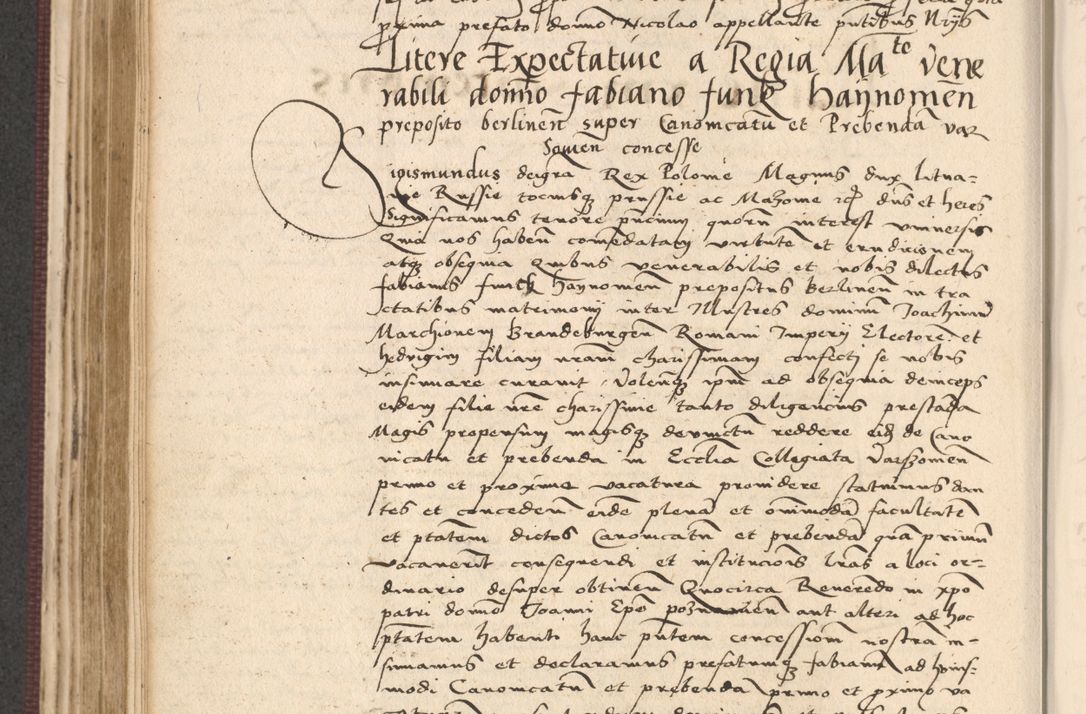 prima prefato domno Nicolao appellante pntibus Nrijs
Litere Expectative a Regia Mate vene
rabili domno fabiano funk haÿnomen
preposito berlinen super Canonicatu et Prebenda var
Sovien concesse
Sigismundus dei gra Rex Polonie Magnus dux Litua-
nie Russie tociusq prussie ac Mazovie etc dns et heres
Significamus tenore pncium quorum interest universis
Quia nos haben comendatam virtute et erudicionem
atq obsequia Quibus venerabilis et nobis dilectus
fabianus funck haynomen prepositus Berlinen in tra
ctatibus matrimonij inter Illustres dominum Joachimum
Marchionem Brandeburgen Romani Imperij Electore et
hedvigim filiam nram charissimam confecti se nobis
insinuare curavit Volentesq ipm ad obsequia deinceps
eidem filie nre charissime tanto diligencius prestada
Magis propensum magisq devinctu reddere eid de Cano
nicatu et prebenda in Ecclia Collegiata Varszovien
primo et proxime vacatura providere statuimus dan
tes et conceden eide plena et omnimoda facultate
et ptatem dictos Canonicatu et prebenda qua primum
vacaverit consequendi et instituciois lras a loci or-
dinario desuper obtinen Quocirca Reverendo in xpo
patri domno Joanni Epo poznanien aut alteri ad hoc
ptatem habenti hanc pntem concessionem nostra in-
sinuamus et declaramus prefatumq fabianu ad huius-
modi Canonicatu et prebenda primo et proximo va